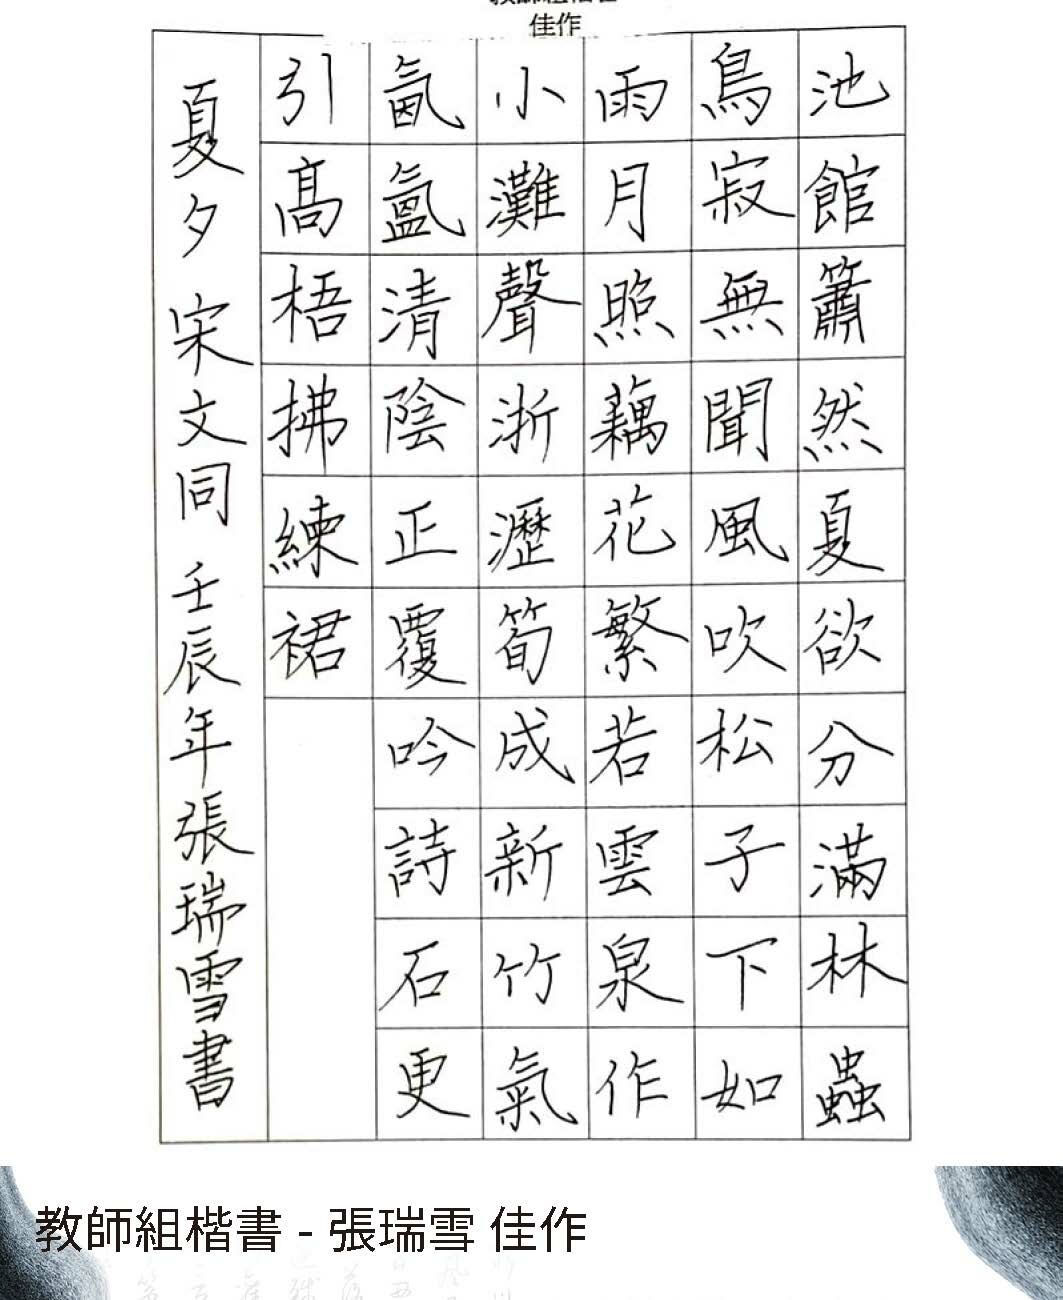 佳作
池館簫然夏欲分滿林蟲
鳥寂無聞風吹松子下如
雨月照藕花繁若雲泉作
小灘聲浙瀝筍成新竹氣
氤氳清陰正覆吟詩石更
引高梧拂練裙
夏夕 宋文同 壬辰年張瑞雪書
教師組楷書 - 張瑞雪 佳作